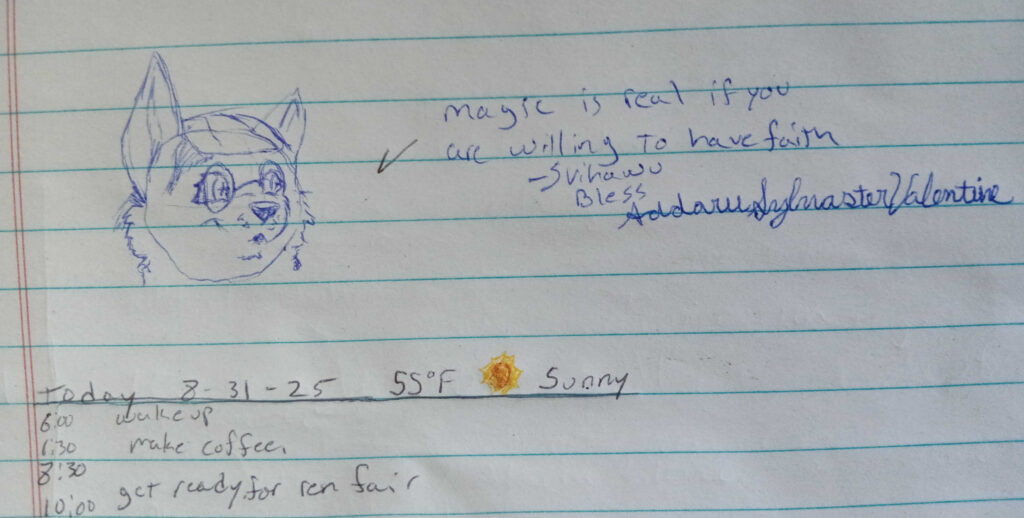 magic is real if you
are willing to have faith
Bless
Valentine
Today 8-31-25 55°F Sunny
6:00 wake up
make coffee.
8:30
get ready for ren fair
10:00